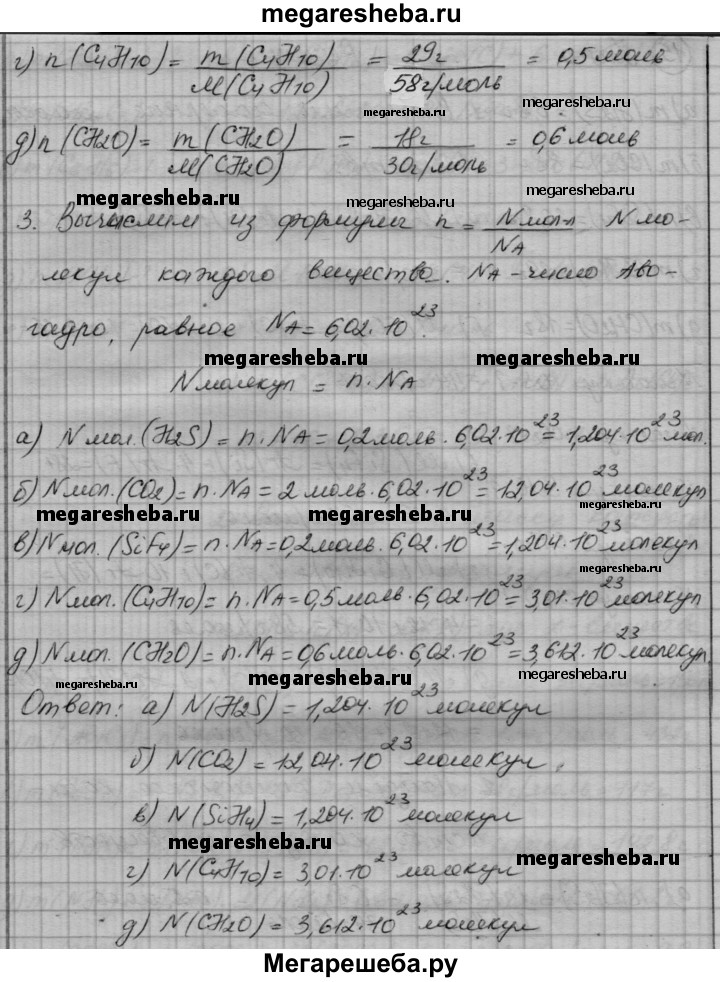 megaresheba.ru
г) n(C4H10) = m(C4H10) / M(C4H10) = 29г / 58г/моль = 0,5 моль
megaresheba.ru
megaresheba.ru
д) n(CH2O) = m(CH2O) / M(CH2O) = 18г / 30г/моль = 0,6 моль
megaresheba.ru megaresheba.ru megaresheba.ru
3. Вычислим из формулы n = Nмол / NA N мо-
лекул каждого вещества. NA - число Аво-
гадро, равное NA = 6,02·10^23.
megaresheba.ru megaresheba.ru
Nмолекул = n·NA
а) Nмол.(H2S) = n·NA = 0,2моль·6,02·10^23 = 1,204·10^23 мол.
б) Nмол.(CO2) = n·NA = 2 моль·6,02·10^23 = 12,04·10^23 молекул
megaresheba.ru megaresheba.ru megaresheba.ru
в) Nмол.(SiF4) = n·NA = 0,2моль·6,02·10^23 = 1,204·10^23 молекул
megaresheba.ru
г) Nмол.(C4H10) = n·NA = 0,5моль·6,02·10^23 = 3,01·10^23 молекул
д) Nмол.(CH2O) = n·NA = 0,6моль·6,02·10^23 = 3,612·10^23 молекул
megaresheba.ru megaresheba.ru megaresheba.ru
Ответ: а) N(H2S) = 1,204·10^23 молекул
б) N(CO2) = 12,04·10^23 молекул
в) N(SiH4) = 1,204·10^23 молекул
megaresheba.ru megaresheba.ru
г) N(C4H10) = 3,01·10^23 молекул
д) N(CH2O) = 3,612·10^23 молекул
Мегарешеба.ру